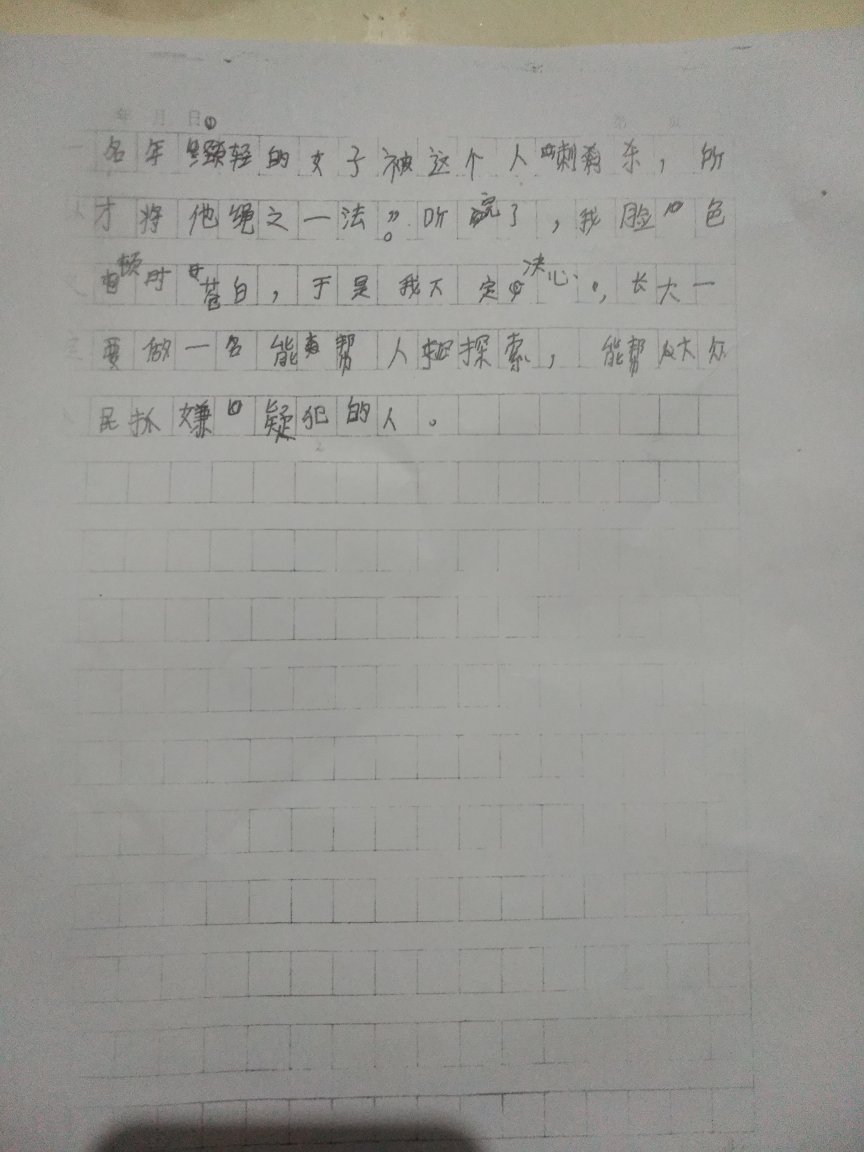 年 月 日
一名年轻的女子被这个人刺杀，所
才将他绳之一法”。听完了，我脸色
顿时苍白，于是我下定决心，长大一
要做一名能帮人探索，能帮大众
民抓嫌疑犯的人。